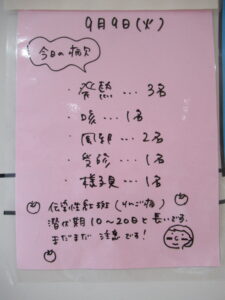 9月9日(火)
今日の病欠
・発熱…3名
・咳…1名
・風邪…2名
・受診…1名
・様子見…1名
伝染性紅斑(りんご病)
潜伏期10〜20日と長いです。
まだまだ注意です!